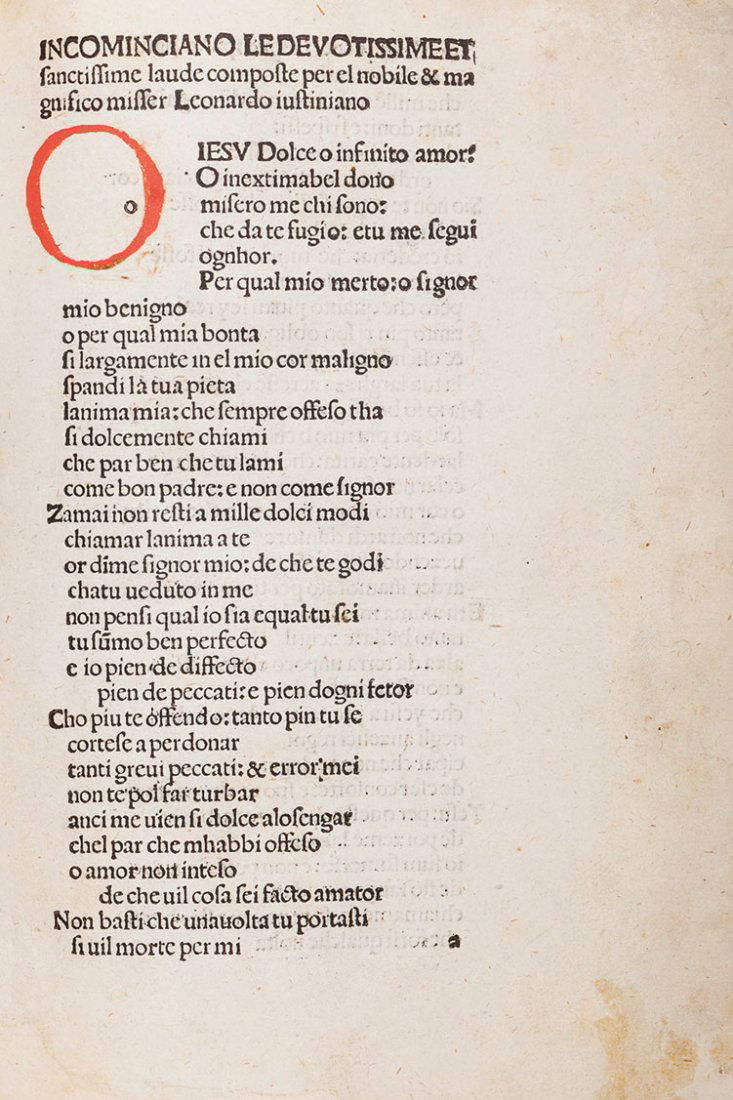 INCOMINCIANO LE DEVOTISSIME ET
sanctissime laude composte per el nobile & ma
gnifico misser Leonardo iustiniano
O
o
IESV Dolce o infinito amor:
O inextimabel dono
misero me chi sono:
che da te fugio: e tu me segui
ognhor.
Per qual mio merto: o signor
mio benigno
o per qual mia bonta
si largamente in el mio cor maligno
spandi là tua pieta
lanima mia: che sempre offeso tha
si dolcemente chiami
che par ben che tu lami
come bon padre: e non come signor
Zamai non resti a mille dolci modi
chiamar lanima a te
or dime signor mio: de che te godi
cha tu ueduto in me
non pensi qual io sia equal tu sei
tu sūmo ben perfecto
e io pien de diffecto
pien de peccati: e pien dogni fetor
Cho piu te offendo: tanto pin tu se
cortese a perdonar
tanti greui peccati: & error mei
non te pol far turbar
anci me uien si dolce a losengar
chel par che mhabbi offeso
o amor non inteso
de che uil cosa sei facto amator
Non basti che una uolta tu portasti
si uil morte per mi
a